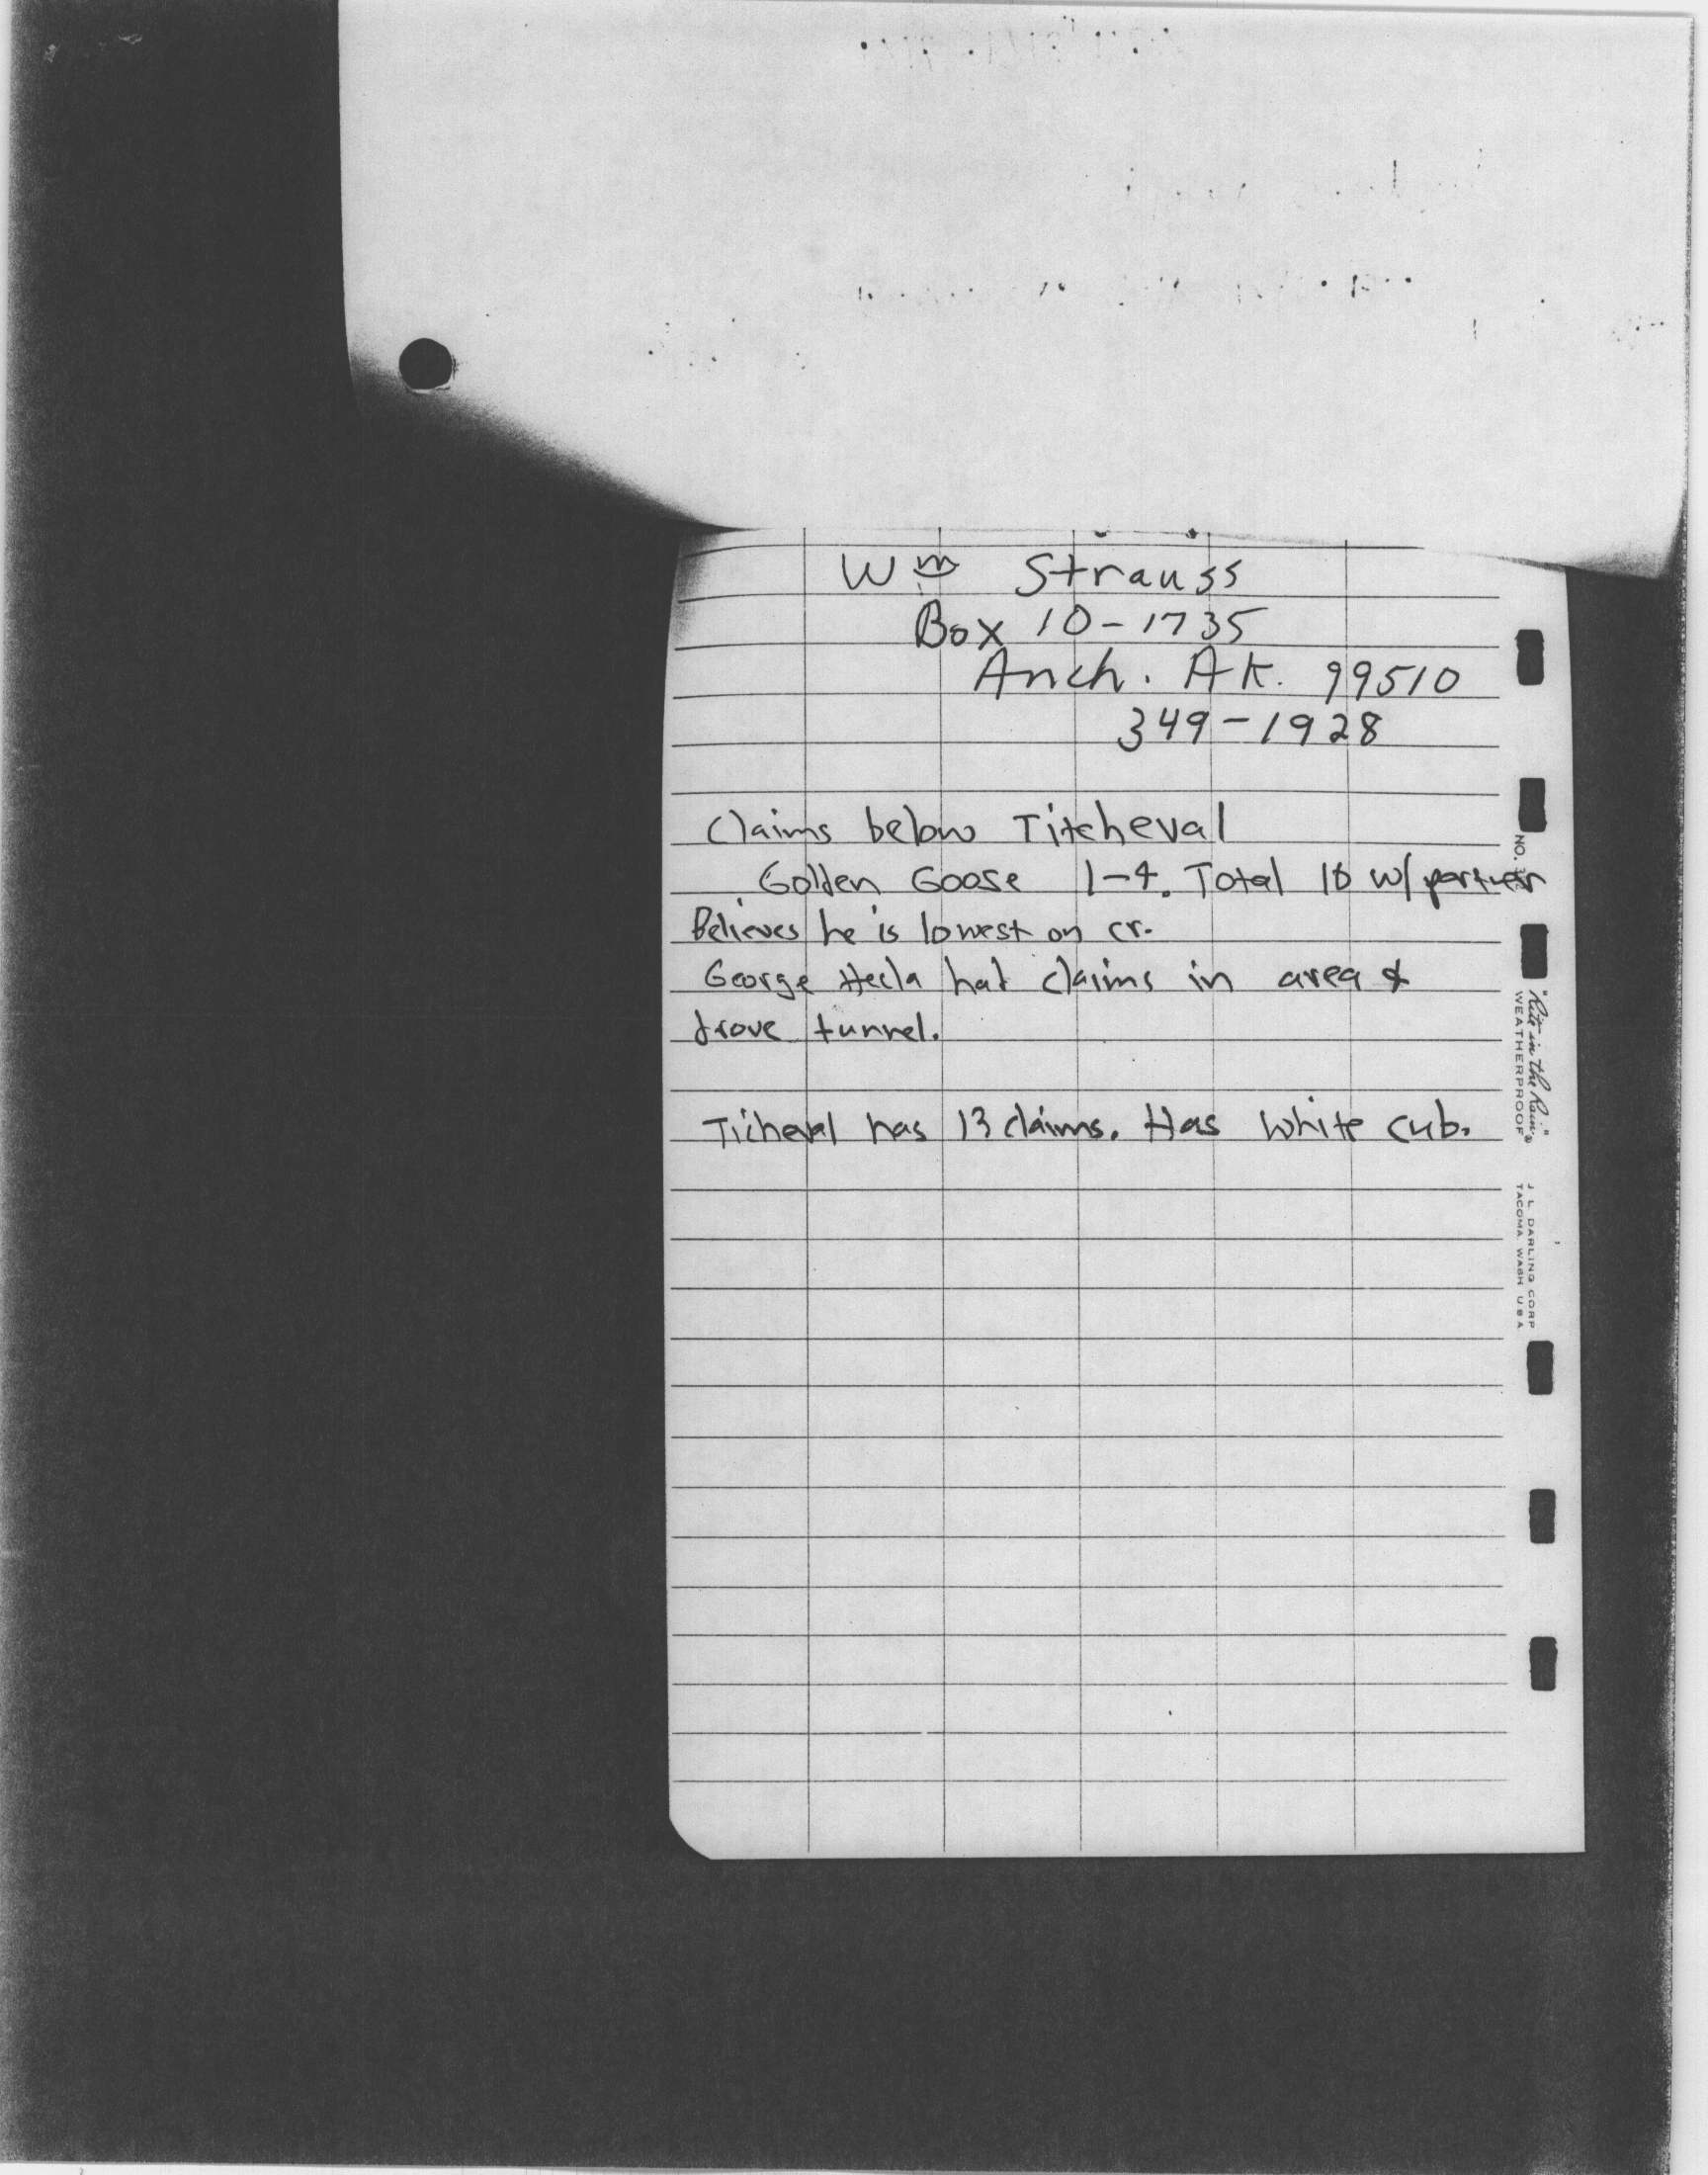 Wm Strauss
Box 10-1735
Anch. AK. 99510
349-1928
Claims below Titcheval
Golden Goose 1-4. Total 10 w/ partner
Believes he is lowest on cr.
George Hecla had claims in area &
drove tunnel.
Ticheval has 13 claims. Has white cub.
NO.
"Rite in the Rain"®
WEATHERPROOF
J. L. DARLING CORP
TACOMA WASH U.S.A.